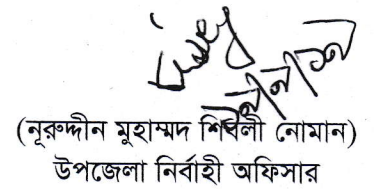 (নূরুদ্দীন মুহাম্মদ শিবলী নোমান)
উপজেলা নির্বাহী অফিসার